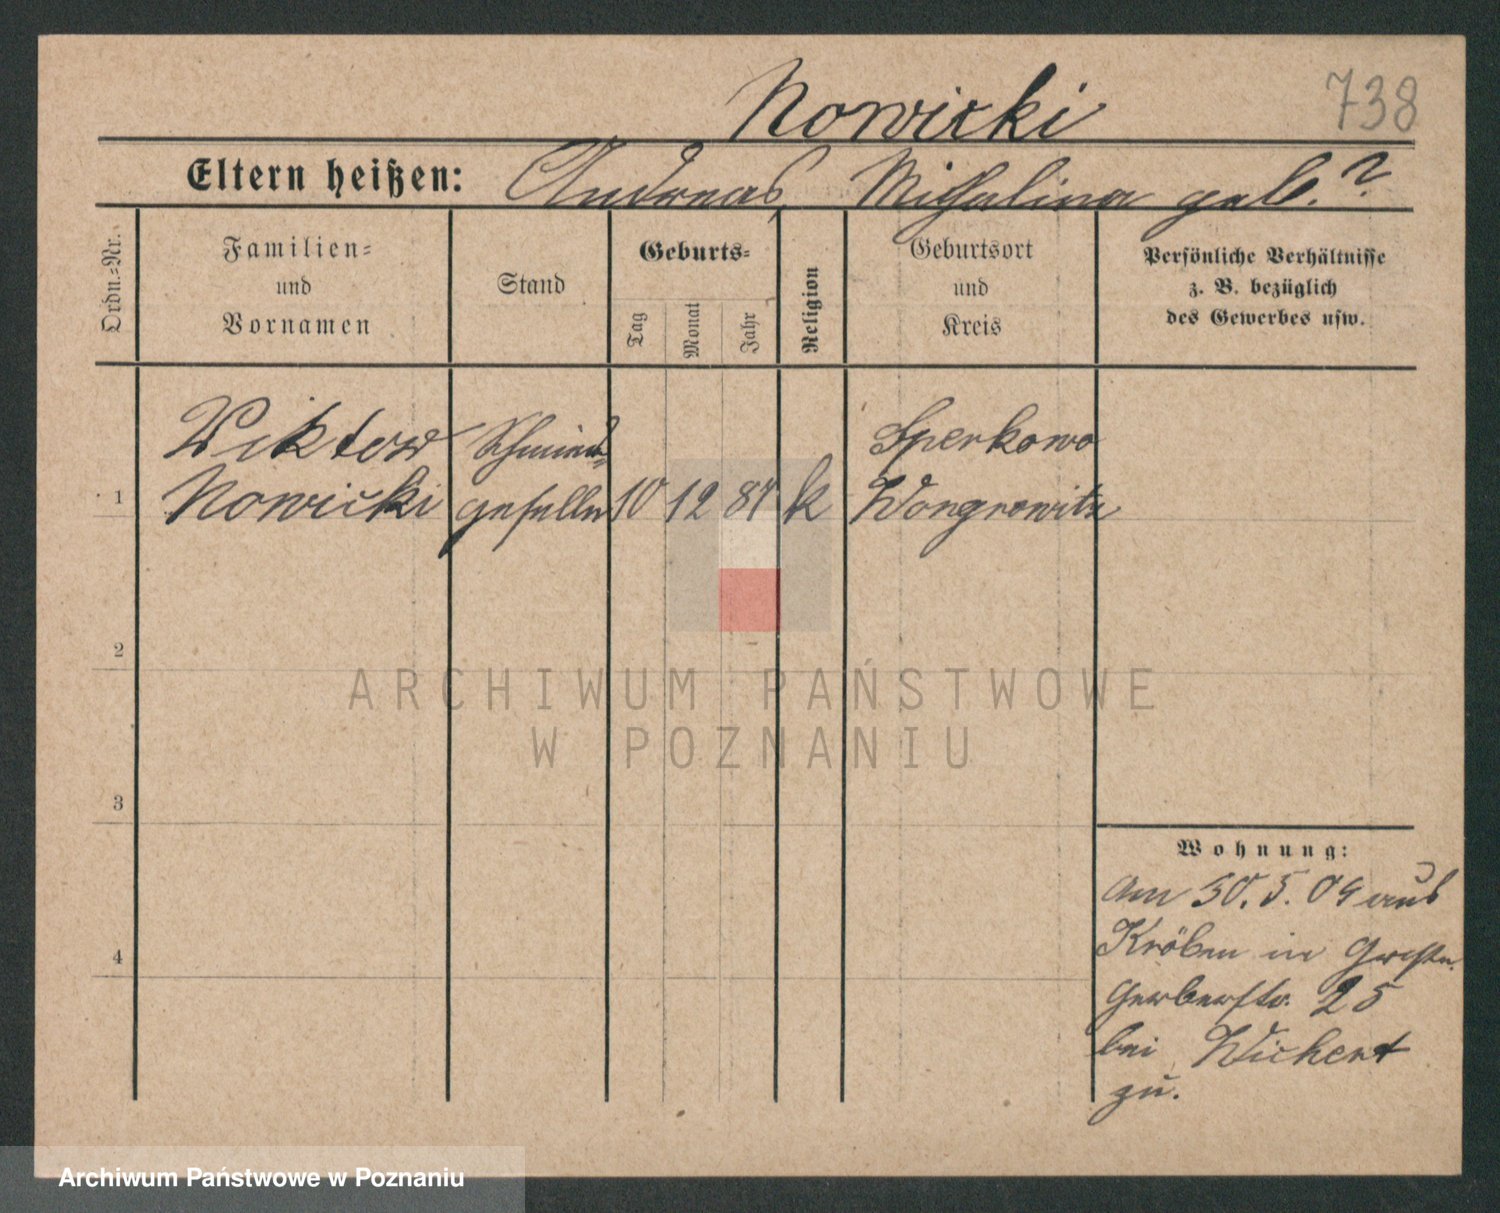 Nowicki 738
Eltern heißen: Andreas, Michalina geb. ?
Ordn.-Nr.
Familien-
und
Vornamen
Stand
Geburts-
Tag
Monat
Jahr
Religion
Geburtsort
und
Kreis
Persönliche Verhältnisse
z. B. bezüglich
des Gewerbes usw.
Viktor Schmiede- Sperkowo
1 Nowicki geselle 10 12 87 k Wongrowitz
2
ARCHIWUM PAŃSTWOWE
W POZNANIU
3
4
Wohnung:
Am 30. 5. 09 aus
Kröben in
Gerberstr. 25
bei Wichert
zu.
Archiwum Państwowe w Poznaniu